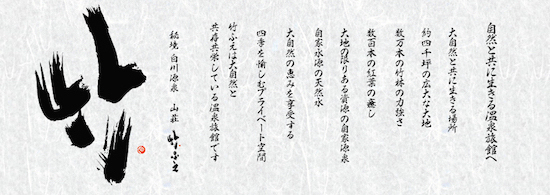 自然と共に生きる温泉旅館へ
大自然と共に生きる場所
約四千坪の広大な大地
数万本の竹林の力強さ
数百本の紅葉の癒し
大地の限りある資源の自家源泉
自家水源の天然水
大自然の恵みを享受する
四季を愉しむプライベート空間
竹ふえは大自然と
共存共栄している温泉旅館です
秘境 白川源泉 山荘 竹ふえ
竹